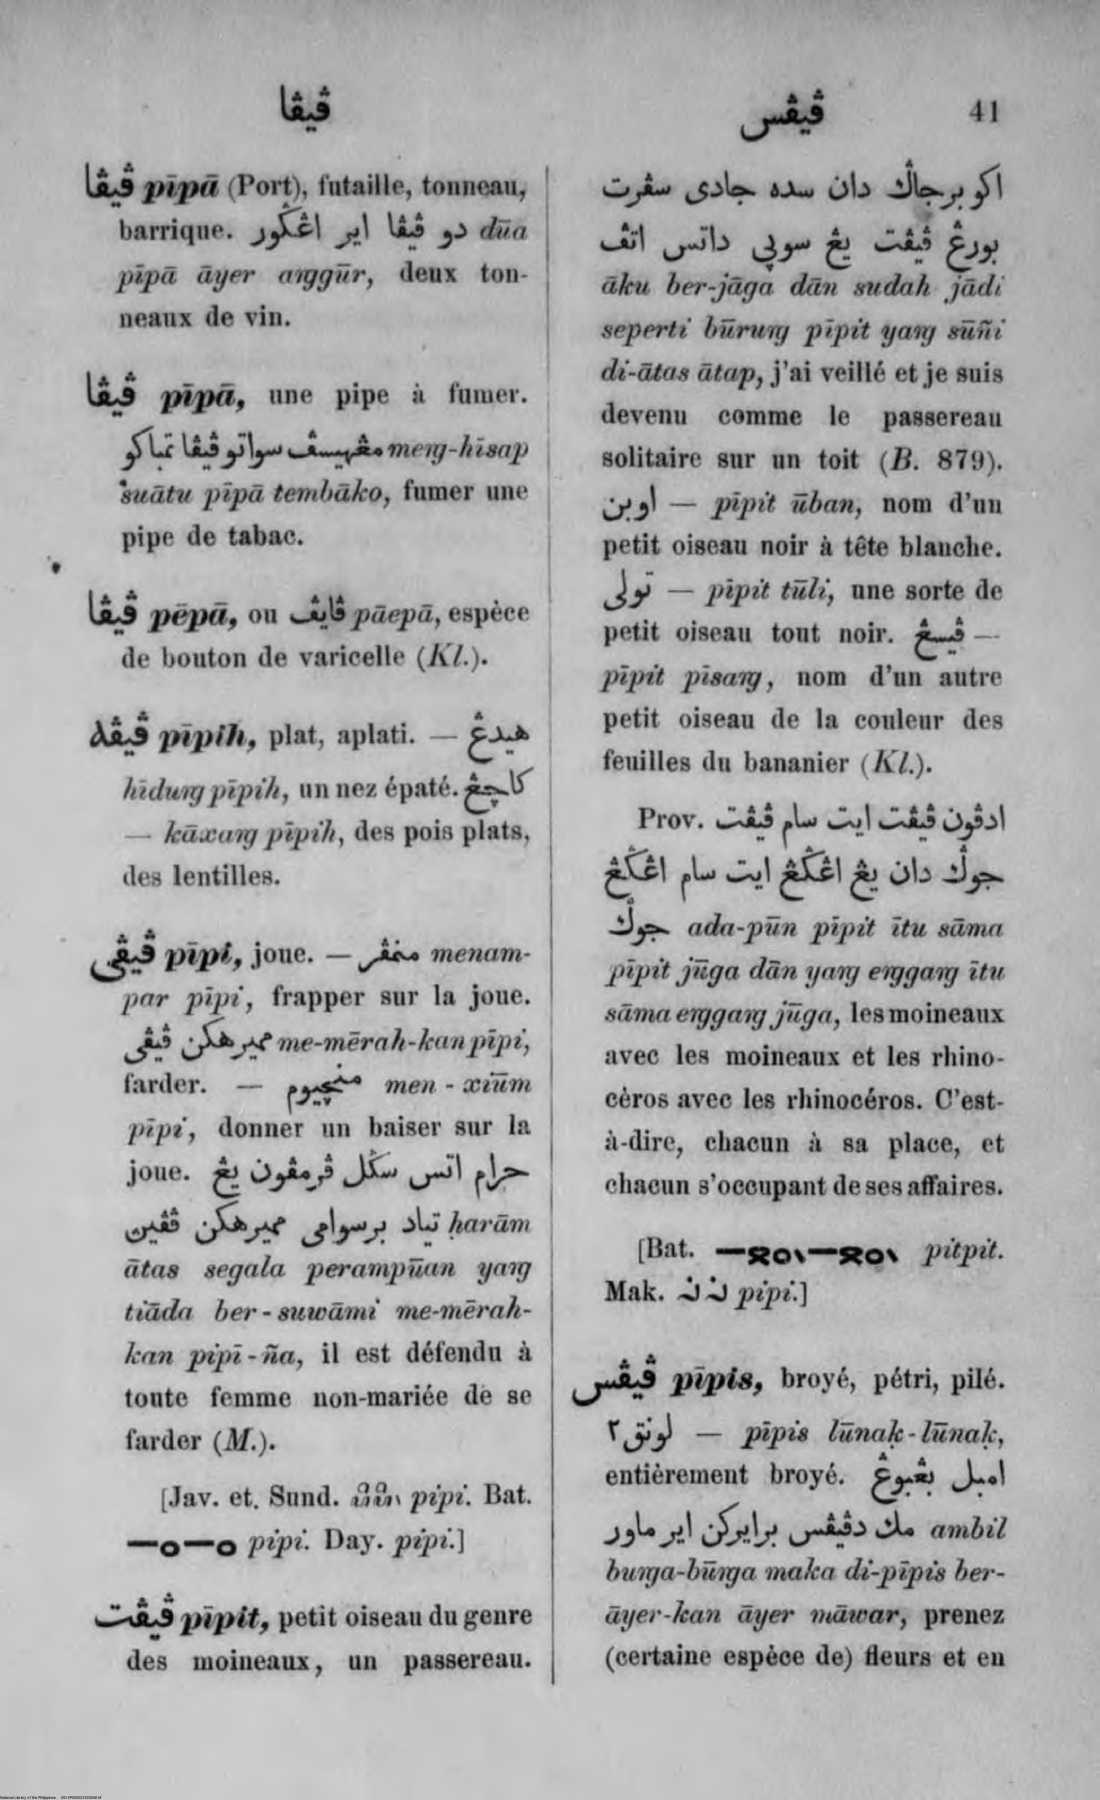 ڤيڤا
ڤيڤس 41
ڤيڤا pīpā (Port), futaille, tonneau,
barrique. دو ڤيڤا اير اڠݢور dūa
pīpā āyer aŋggūr, deux ton-
neaux de vin.
ڤيڤا pīpā, une pipe à fumer.
مڠهيسڤ سواتو ڤيڤا تمباكو meŋ-hīsap
suātu pīpā tembāko, fumer une
pipe de tabac.
ڤيڤا pēpā, ou ڤايڤ pāepā, espèce
de bouton de varicelle (Kl.).
ڤيڤه pīpih, plat, aplati. — هيدڠ
hīduŋ pīpih, un nez épaté. كاچڠ
— kāxaŋ pīpih, des pois plats,
des lentilles.
ڤيڤي pīpi, joue. — منمڤر menam-
par pīpi, frapper sur la joue.
ميرهكن ڤيڤي me-mērah-kan pīpi,
farder. — منچيوم men-xiūm
pīpi, donner un baiser sur la
joue. حرام اتس سݢل ڤرمڤون يڠ
تياد برسوامي ميرهكن ڤڤين ḥarām
ātas segala perampūan yaŋ
tiāda ber-suwāmi me-mērah-
kan pipī-ña, il est défendu à
toute femme non-mariée de se
farder (M.).
[Jav. et. Sund. pipi. Bat.
pipi. Day. pipi.]
ڤيڤت pīpit, petit oiseau du genre
des moineaux, un passereau.
اكو برجاݢ دان سده جادي سڤرت
بورڠ ڤيڤت يڠ سوڽي داتس اتڤ
āku ber-jāga dān sudah jādi
seperti būruŋ pīpit yaŋ sūñi
di-ātas ātap, j'ai veillé et je suis
devenu comme le passereau
solitaire sur un toit (B. 879).
اوبن — pīpit ūban, nom d'un
petit oiseau noir à tête blanche.
تولي — pīpit tūli, une sorte de
petit oiseau tout noir. ڤيسڠ —
pīpit pīsaŋ, nom d'un autre
petit oiseau de la couleur des
feuilles du bananier (Kl.).
Prov. ادڤون ڤيڤت ايت سام ڤيڤت
جوݢ دان يڠ اڠݢڠ ايت سام اڠݢڠ
جوݢ ada-pūn pīpit ītu sāma
pīpit jūga dān yaŋ eŋgaŋ ītu
sāma eŋgaŋ jūga, les moineaux
avec les moineaux et les rhino-
céros avec les rhinocéros. C'est-
à-dire, chacun à sa place, et
chacun s'occupant de ses affaires.
[Bat. pitpit.
Mak. pipi.]
ڤيڤس pīpis, broyé, pétri, pilé.
لونق٢ — pīpis lūnaḳ-lūnaḳ,
entièrement broyé. امبل بڠبوڠ
مك دڤيڤس برايركن اير ماور ambil
buŋa-būŋa maka di-pīpis ber-
āyer-kan āyer māwar, prenez
(certaine espèce de) fleurs et en